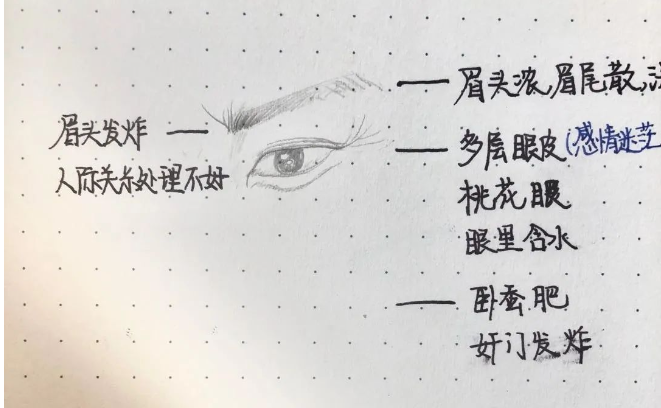 眉头浓,眉尾散,
眉头发炸
人际关系处理不好
多层眼皮(感情迷茫
桃花眼
眼里含水
卧蚕肥
奸门发炸